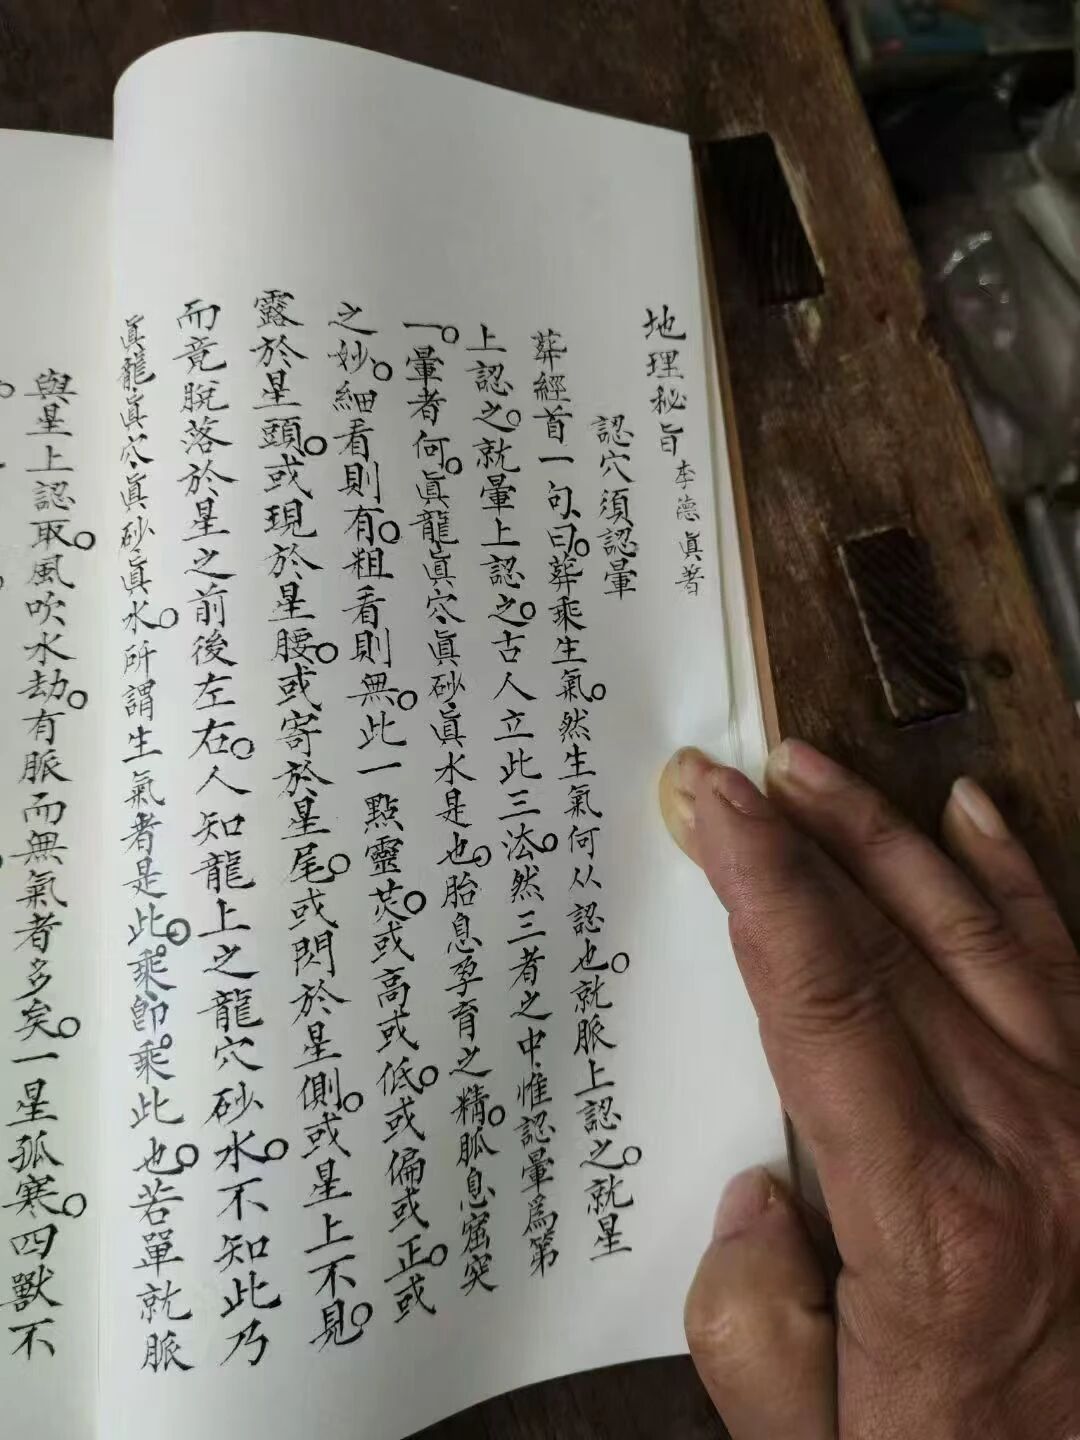 地理秘旨 李德眞著
認穴須認暈
葬經首一句、曰。葬乘生氣。然生氣何从認也。就脈上認之。就星
上認之。就暈上認之。古人立此三法。然三者之中、惟認暈爲第
一。暈者何。眞龍眞穴、眞砂眞水是也。胎息孕育之精。脈息窟突
之妙。細看則有。粗看則無。此一點靈荧。或高或低。或偏或正。或
露於星頭。或現於星腰。或寄於星尾。或閃於星側。或星上不見。
而竟脫落於星之前後左右。人知龍上之龍穴砂水。不知此乃
眞龍眞穴、眞砂眞水。所謂生氣者是此。乘卽乘此也。若單就脈
與星上認取。風吹水劫。有脈而無氣者多矣。一星孤寒。四獸不